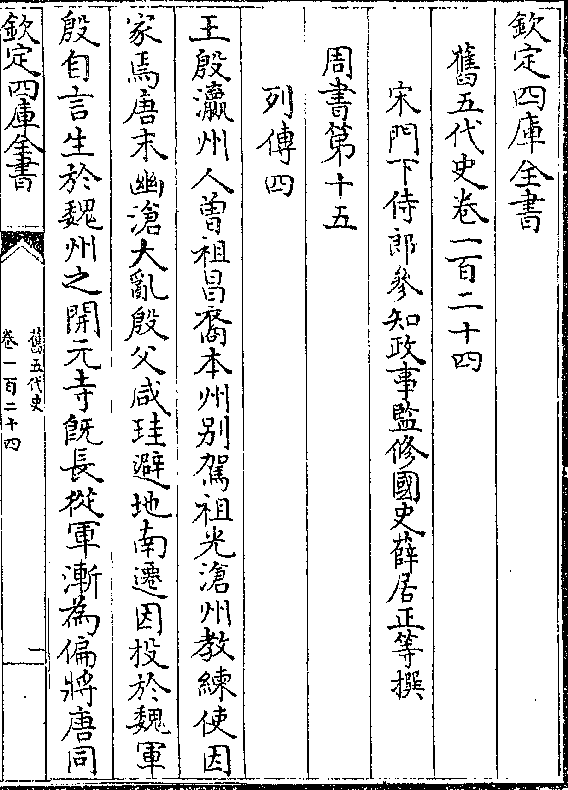 欽定四庫全書
舊五代史卷一百二十四
宋門下侍郎參知政事監修國史薛居正等撰
周書第十五
列傳四
王殷瀛州人曽祖昌裔本州别駕祖光滄州教練使因
家焉唐末幽滄大亂殷父咸珪避地南遷因投於魏軍
殷自言生於魏州之開元寺既長從軍漸為偏將唐同
欽定四庫全書
舊五代史
卷一百二十四
一